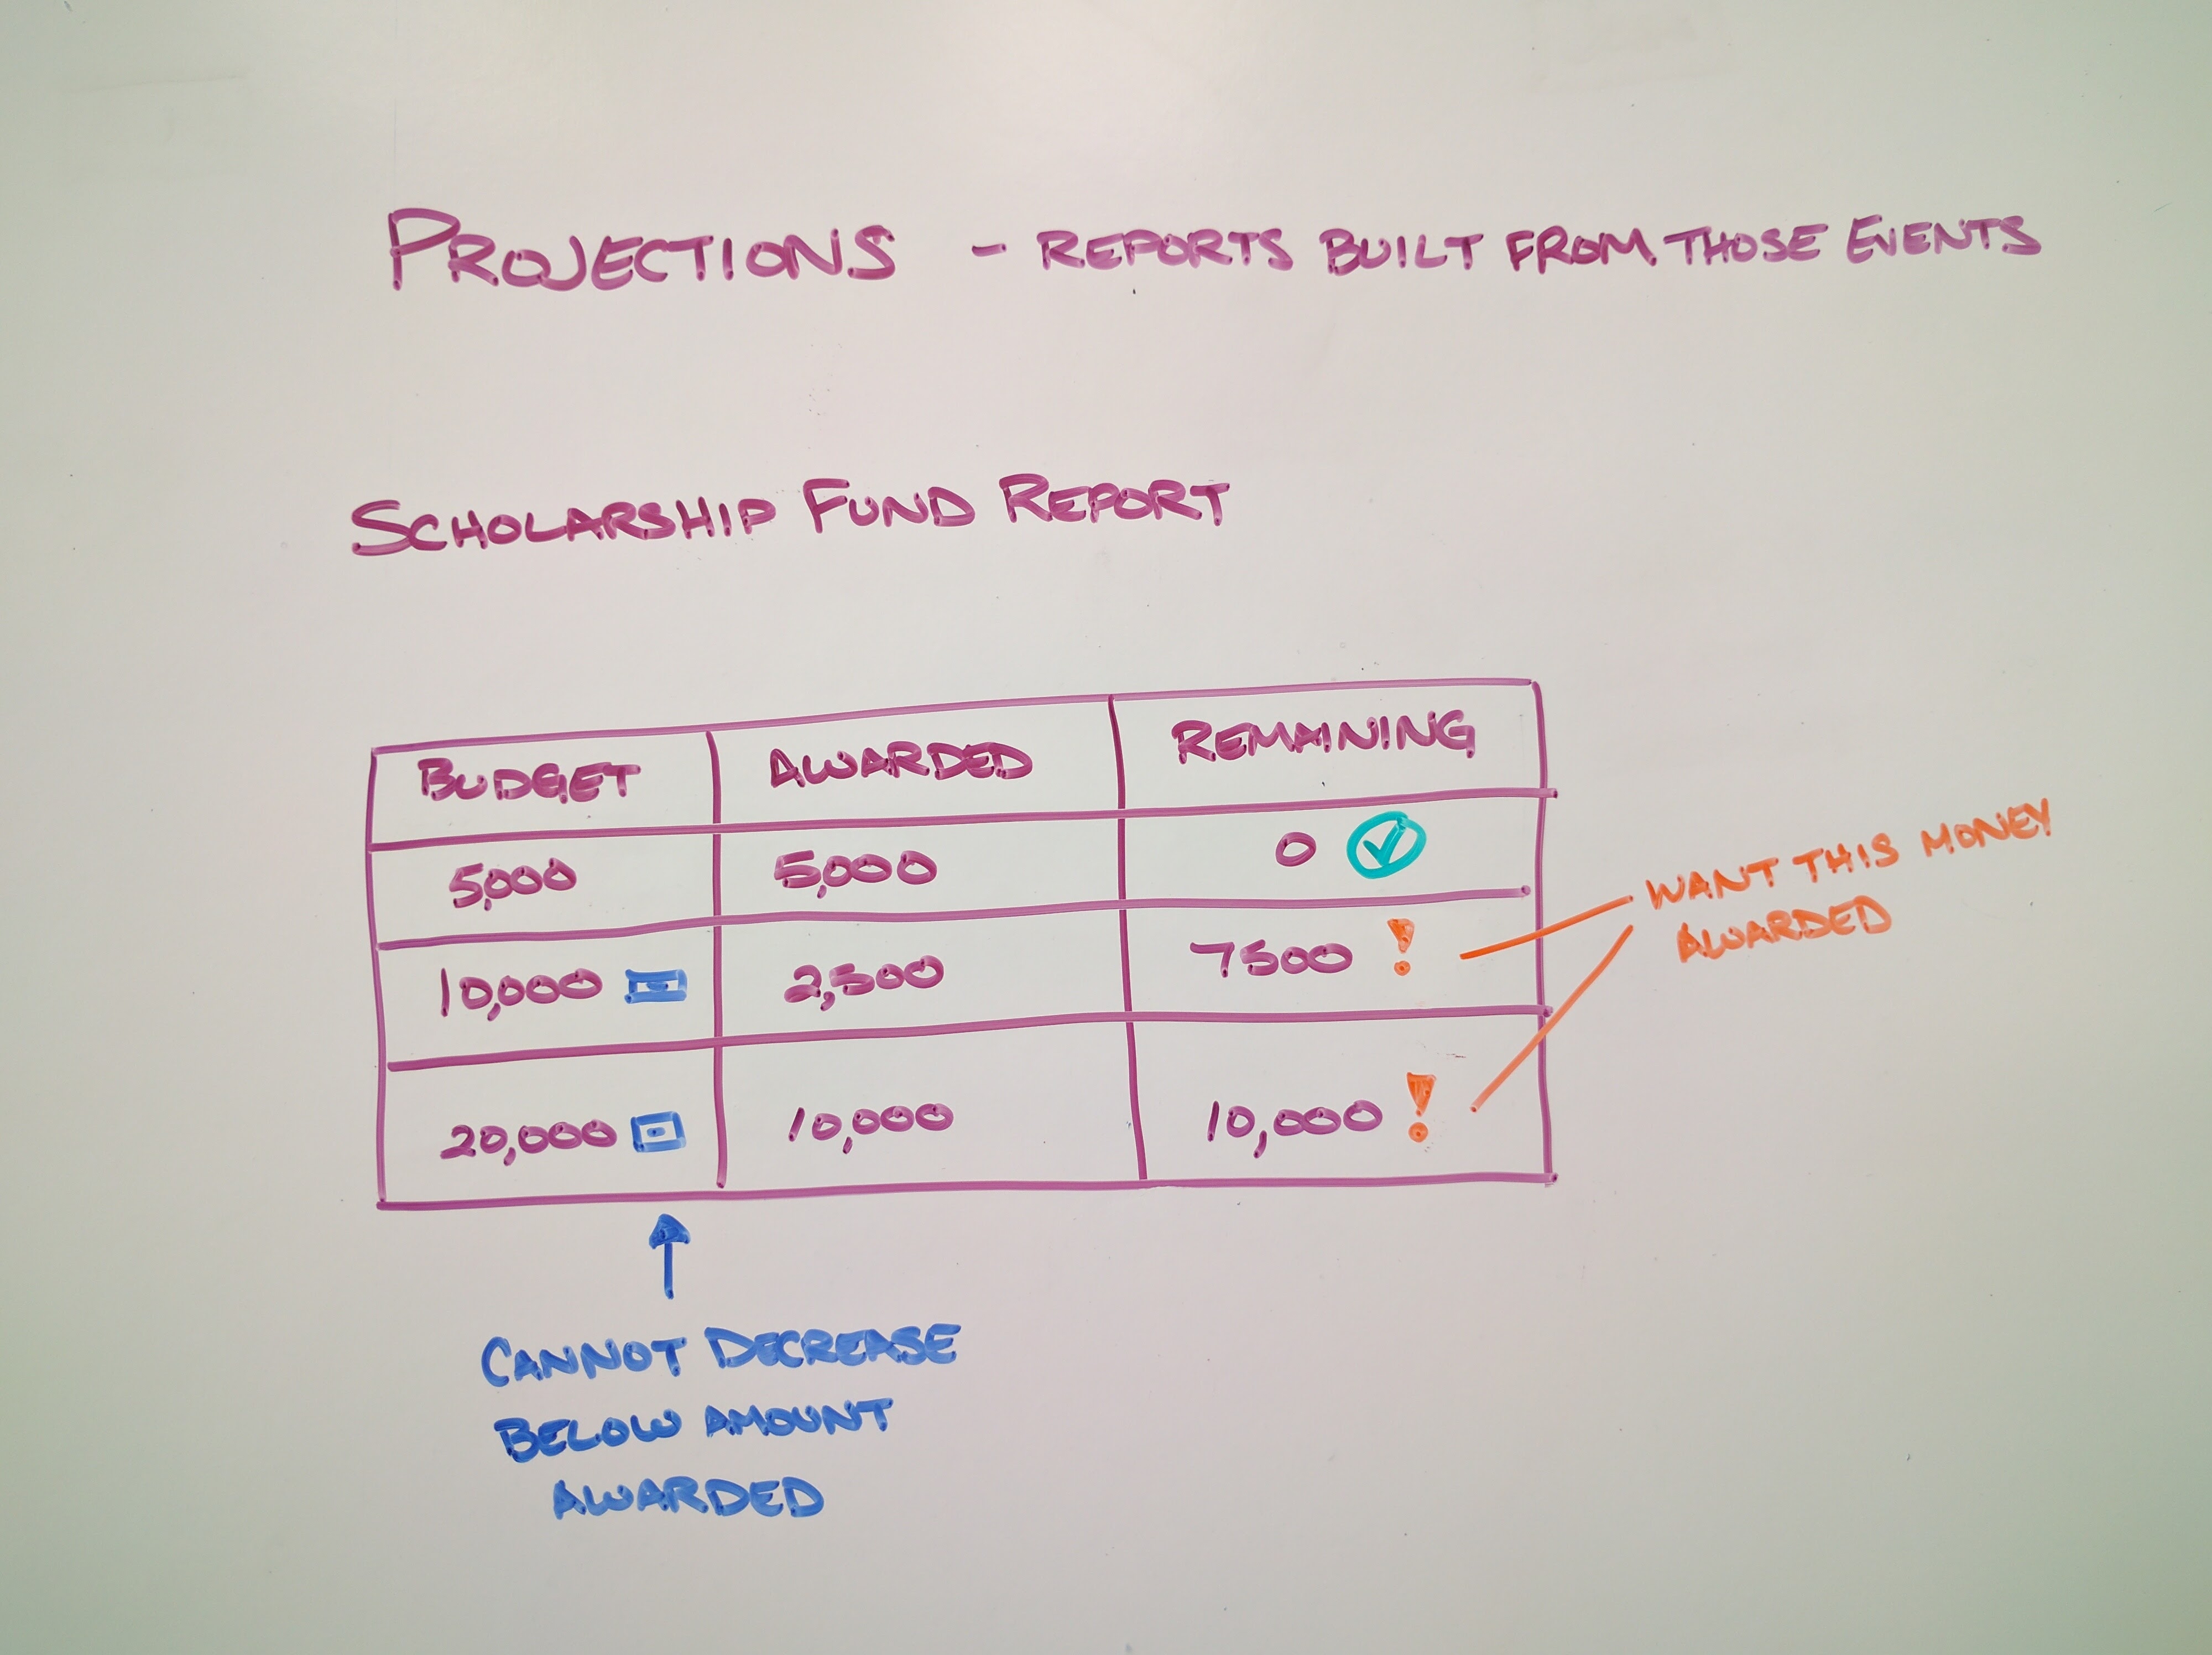 PROJECTIONS - REPORTS BUILT FROM THOSE EVENTS
SCHOLARSHIP FUND REPORT
BUDGET AWARDED REMAINING
5,000 5,000 0
10,000 2,500 7500 !
20,000 10,000 10,000 !
WANT THIS MONEY
AWARDED
CANNOT DECREASE
BELOW AMOUNT
AWARDED